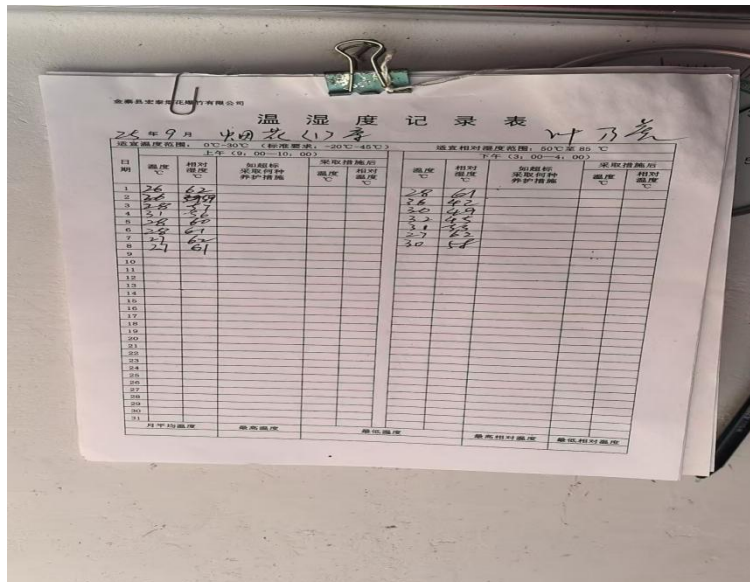 金寨县宏泰烟花爆竹有限公司
温湿度记录表
25年9月 烟花(1)库 叶乃
适宜温度范围：0℃~30℃ （标准要求：-20℃-45℃） 适宜相对湿度范围：50℃至85℃
上午（9：00—10：00） 下午（3：00—4：00）
日期 温度℃ 相对湿度℃ 如超标采取何种养护措施 采取措施后 温度℃ 相对湿度℃ 如超标采取何种养护措施 采取措施后
温度℃ 相对温度℃ 温度℃ 相对温度℃
1 26 62 28 61
2 36 42
3 28 57 30 49
4 31 56 32 45
5 28 60 31 53
6 28 61 27 62
7 27 62 30 58
8 27 61
9
10
11
12
13
14
15
16
17
18
19
20
21
22
23
24
25
26
27
28
29
30
31
月平均温度 最高温度 最低温度 最高相对温度 最低相对温度